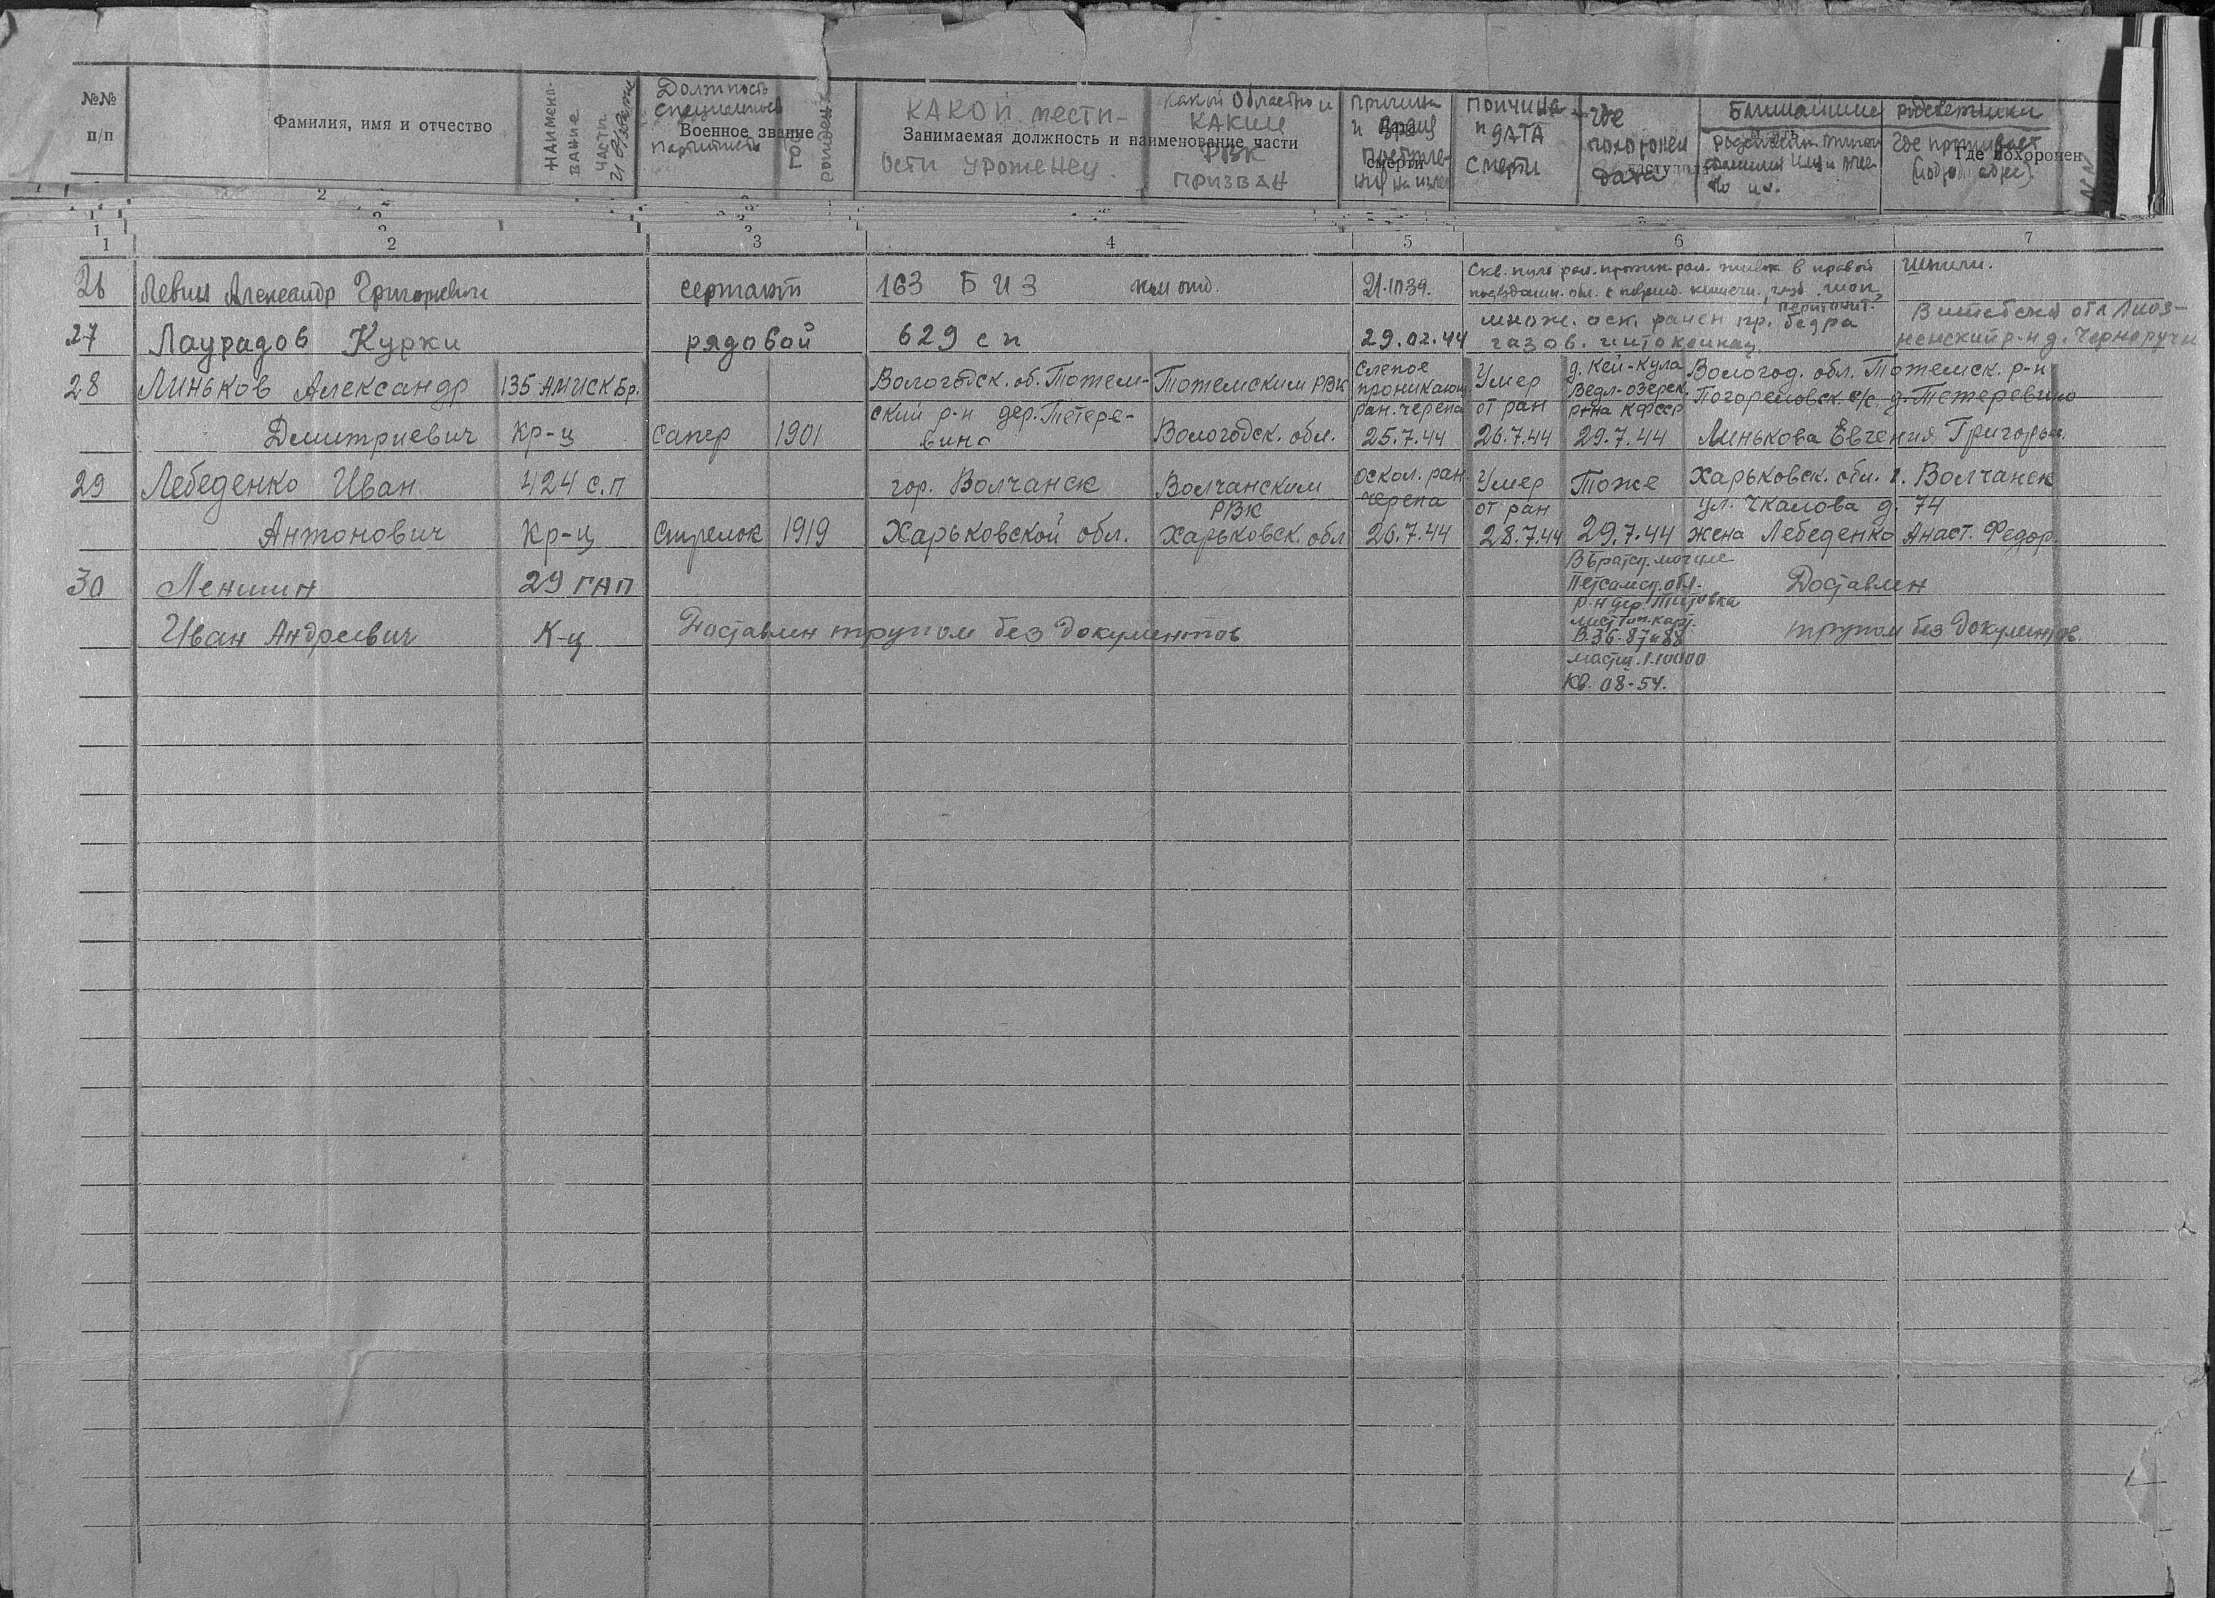 №№ п/п
Фамилия, имя и отчество
Наименование части и звание
Должность специальность партийность
Военное звание
год рождения
КАКОЙ местности уроженец
Занимаемая должность и наименование части
какой областью и КАКИМ РВК призван
Причина и
смерти
Причина и ДАТА смерти
Где похоронен
дата
Ближайшие родственники
Где проживает
Где похоронен
2
1 2 3 4 5 6 7
26 Левин Александр Григорьевич сержант 163 Б И З ком отд. 21.
Скв. пул. ран. проник. ран. живота в правой
Шпили.
27 Лаурадов Курки рядовой 629 сп 29.02.44 множ. оск. ранен пр. бедра
газов. интоксикац.
Витебская обл Лиоз-
ненский р-н д. Черноручи
28 Линьков Александр 135 АМИСКБр. Вологодск. об. Тотем- Тотемским РВК Слепое проникающ ран. черепа Умер от ран д. Кей-Кула Ведл-озерск. р-на КФССР Вологод. обл. Тотемск. р-н
Погореловск с/с. д. Тетеревино
Дмитриевич кр-ц сапер 1901 ский р-н дер. Тетере-
вино Вологодск. обл. 25.7.44 26.7.44 29.7.44 Линькова Евгения Григорье.
29 Лебеденко Иван 424 с.п гор. Волчанск Волчанским РВК Оскол. ран черепа Умер от ран Тоже Харьковск. обл. г. Волчанск
ул. Чкалова д. 74
Антонович Кр-ц Стрелок 1919 Харьковской обл. Харьковск. обл 26.7.44 28.7.44 29.7.44 жена Лебеденко Анаст. Федор.
30 Леншин 29 ГАП В братск. могиле
Петсамск. обл. Доставлен
р-н дер. Титовка
Иван Андреевич К-ц Доставлен трупом без документов трупом без документов.
В-36-87 и 88
масшт. 1-10000
Кв. 08-54.